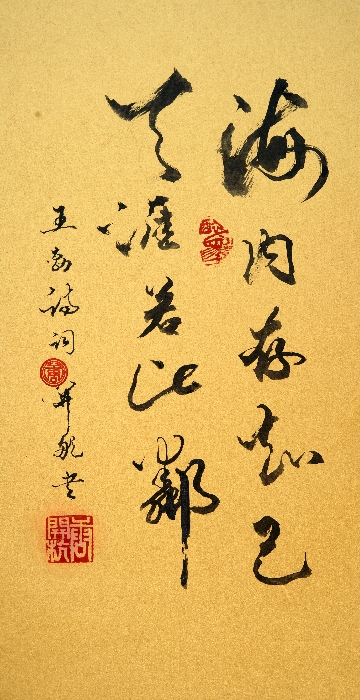 海内存知己
天涯若比鄰
王勃诗词